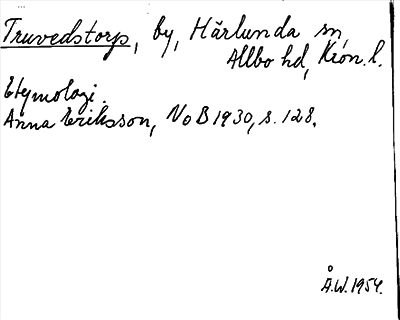 Truvedstorp, by, Härlunda sn,
Allbo hd, Kron. l.
Etymologi.
Anna Eriksson, NoB 1930, s. 128.
Å.W. 1954.